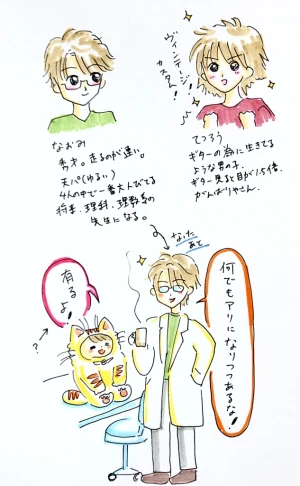 ヴィンテージ
カスタム!
なおみ
秀才。走るのが速い。
天パ(ゆるい)
4人の中で一番大人びてる
将来、理科、理数系の
先生になる。
てつろう
ギターの為に生きてる
ような男の子
ギター見ると目が1.5倍。
がんばりやさん。
なった
あと
有る
よ!
?
何でもアリに
なりつつあるな!